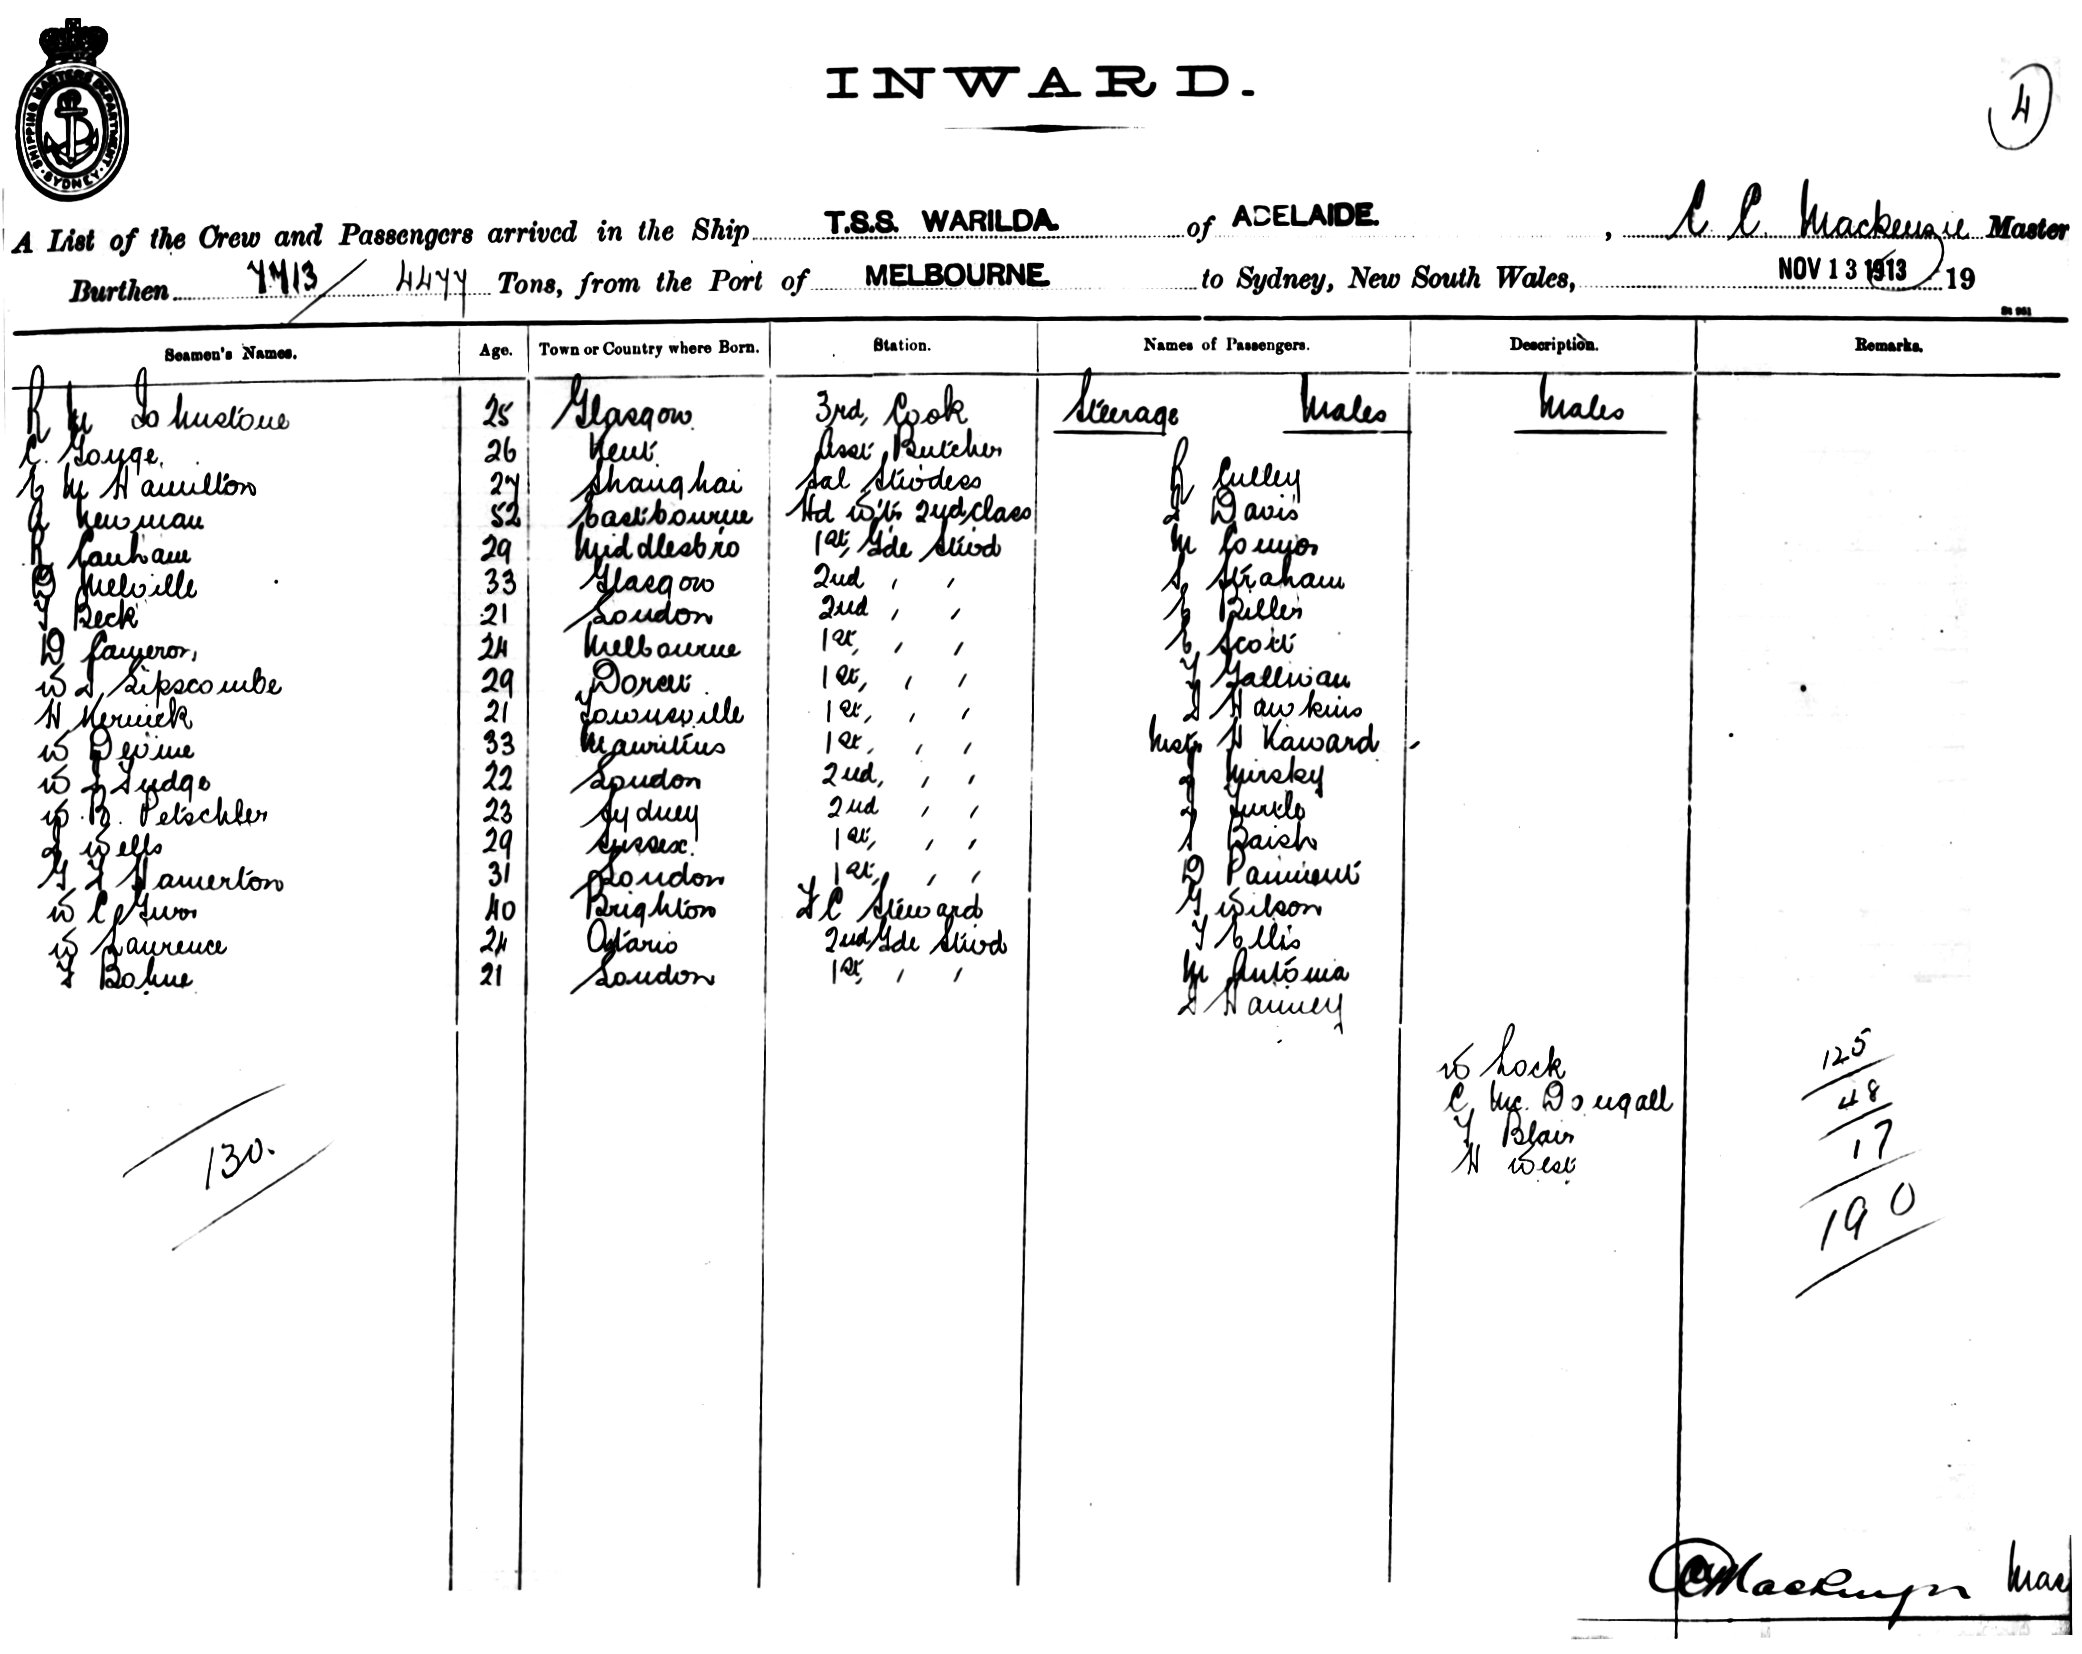 SHIPPING MASTERS DEPARTMENT
SYDNEY
INWARD.
4
A List of the Crew and Passengers arrived in the Ship T.S.S. WARILDA. of ADELAIDE. , C. C. Mackenzie Master
Burthen 7713 / 4477 Tons, from the Port of MELBOURNE to Sydney, New South Wales, NOV 13 1913 19
Seamen's Names. Age. Town or Country where Born. Station. Names of Passengers. Description. Remarks.
R M Johnstone 25 Glasgow 3rd, Cook Steerage Males Males
C. Gouge 26 Kent Asst Butcher
E M Hamilton 27 Shanghai Sal Stwdess R Culley
A Newman 52 Eastbourne Hd Wtr 2nd class Davis
R Canham 29 Middlesbro 1st, Gde Stwd M
D Melville 33 Glasgow 2nd " " S Straham
T Beck 21 London 2nd " " E Biller
D Cameron, 24 Melbourne 1st, " " E Scott
W J Lipscombe 29 Dorset 1st, " " T Gallivan
H Kerwick 21 Townsville 1st, " " J Hawkins
W Devine 33 Mauritius 1st, " " Mstr H Kaward
W J Judge 22 London 2nd, " " J Mirsky
W. B. Petschler 23 Sydney 2nd " " J Turtle
J Wells 29 Sussex 1st, " " S Baish
G F Hamerton 31 London 1st, " " D
W C Gwor 40 Brighton F C Steward G Wilson
W Laurence 24 Otario 2nd Gde Stwd T Ellis
F Bohue 21 London 1st, " " M Antonia
J Hanney
W Lock
C, Mc. Dougall
T Blair
H West
125
48
17
190
130.
CC Mackenzie Mas